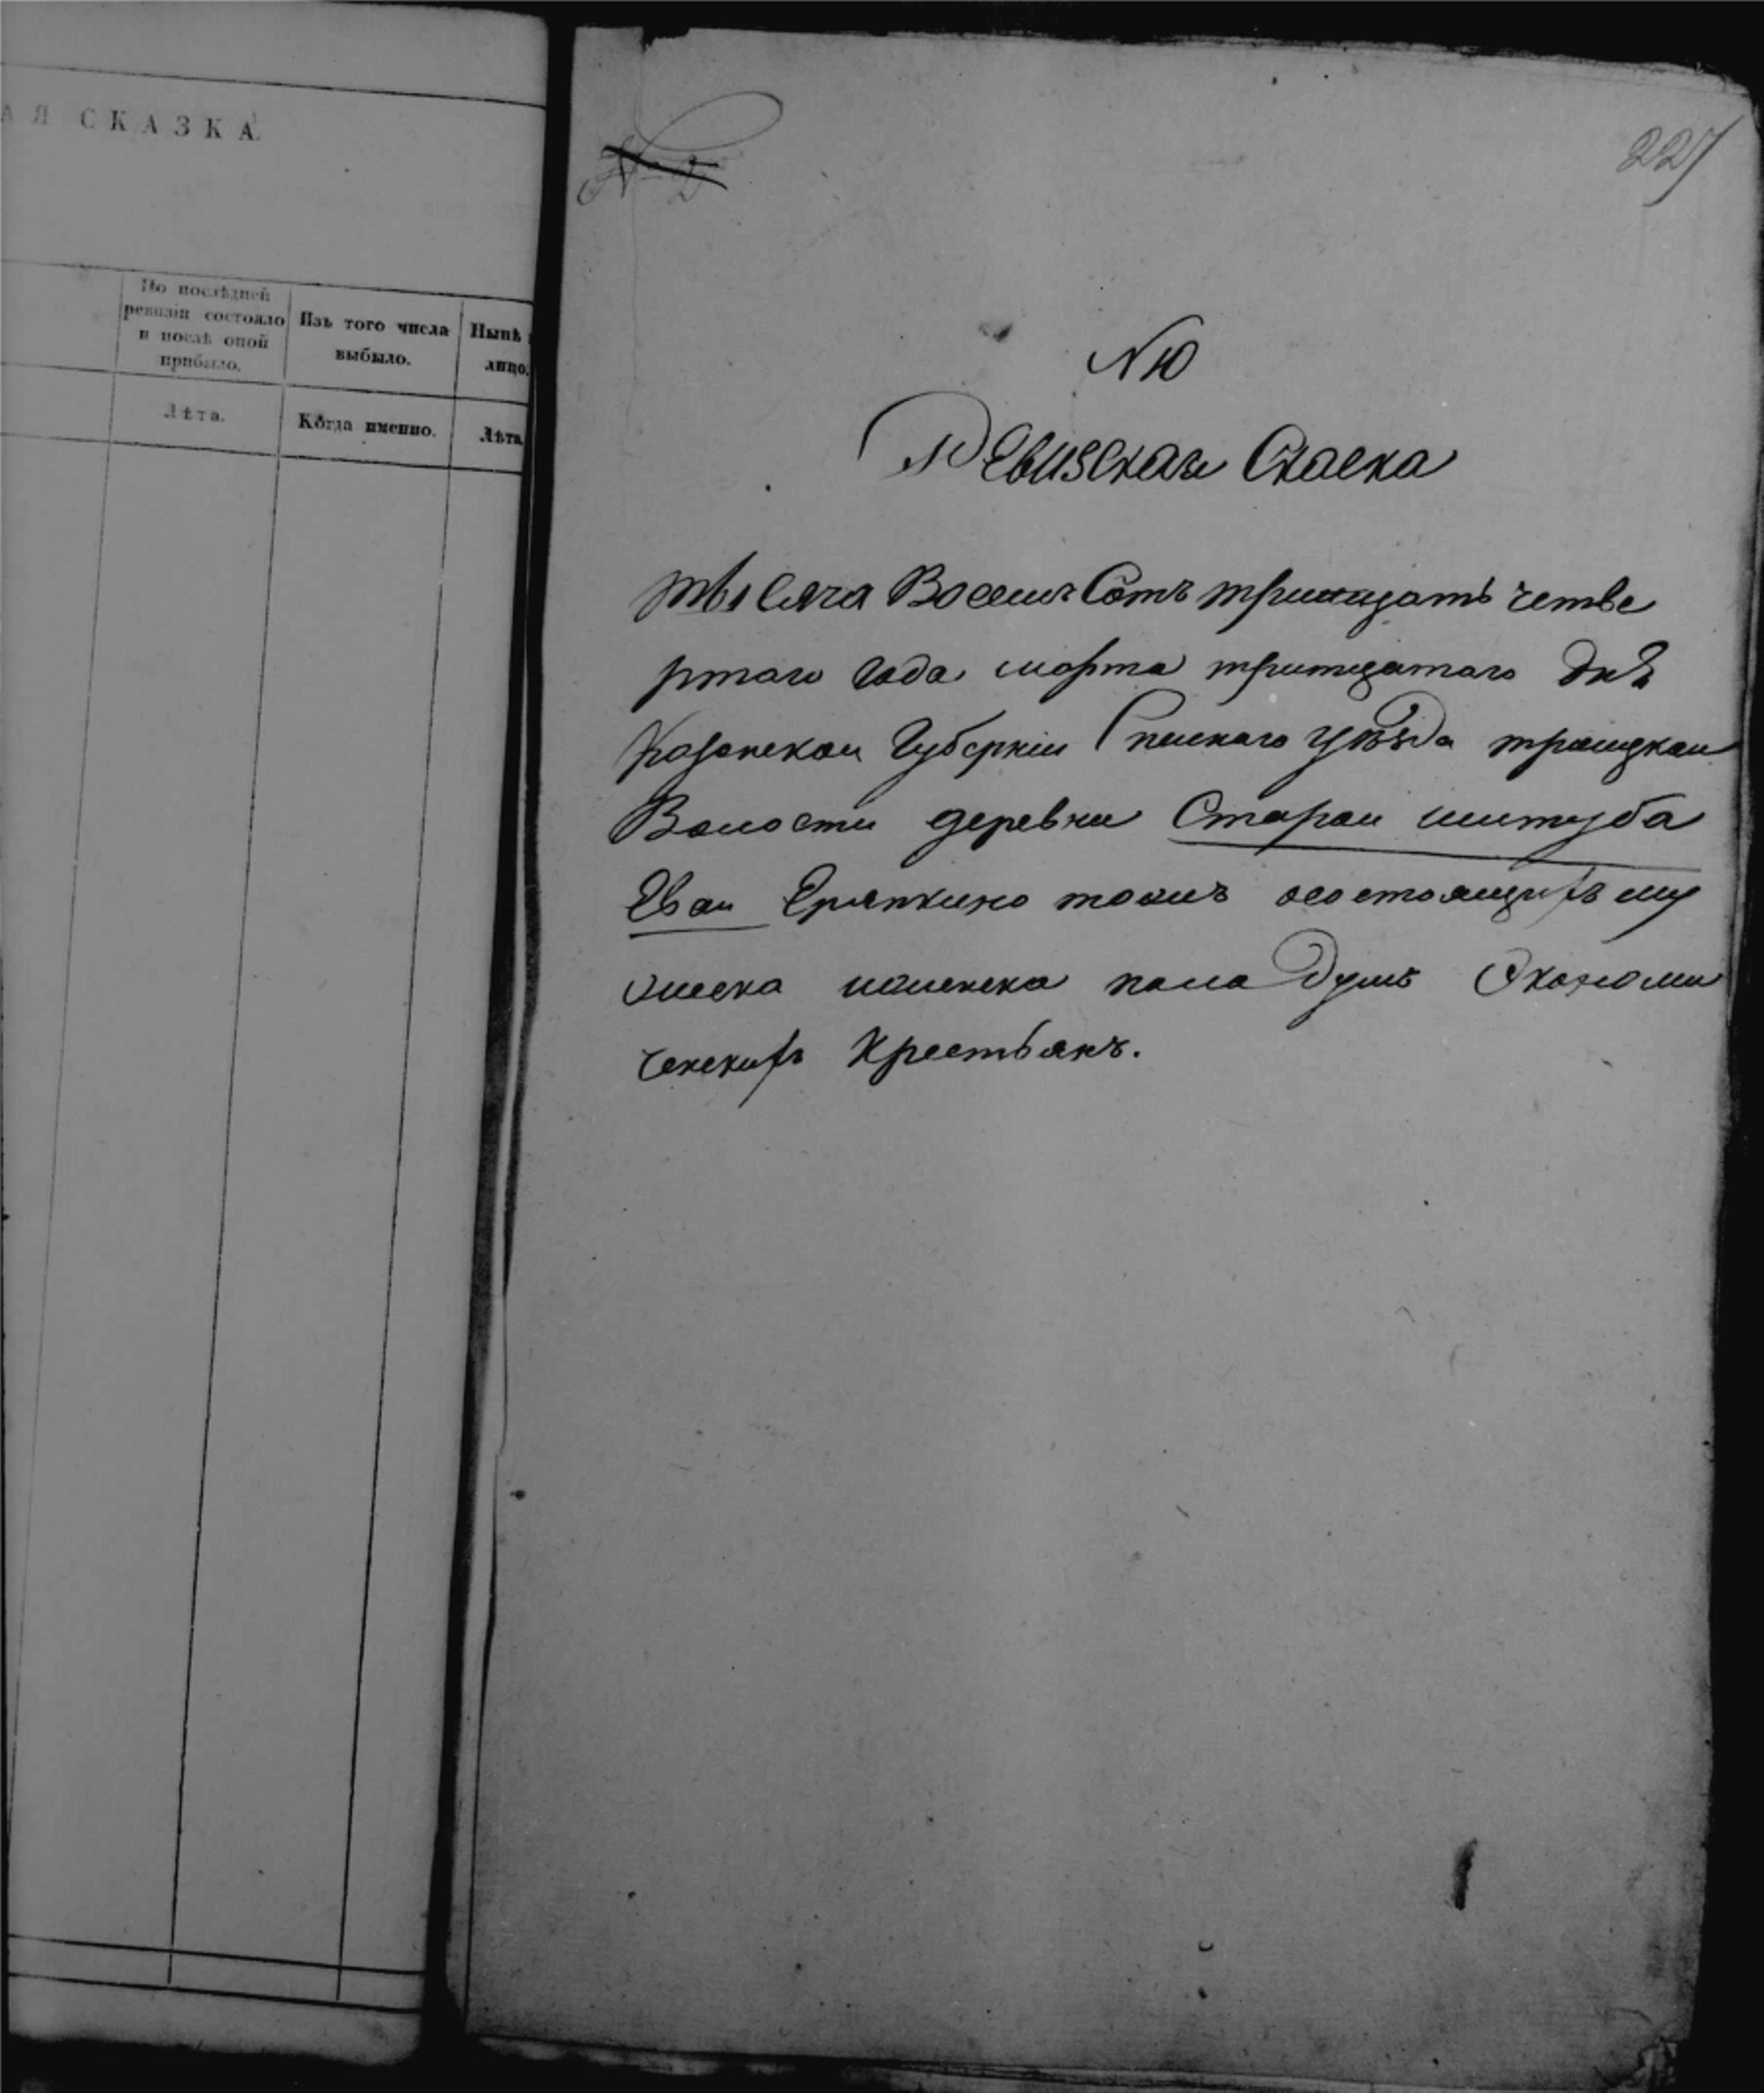 АЯ СКАЗКА.
По послѣдней
ревизіи состояло
и послѣ оной
прибыло.
Изъ того числа
выбыло.
Нынѣ
лицо.
Лѣта.
Когда именно.
Лѣта
№ 2
227
N 10
Ревизская Скаска
тысяча Восемь Сотъ тритцать четве
ртаго Года марта тритцатаго днѣ
Казанскои Губернiи Спаскаго уѣзда троицкои
Волости деревни Старои шитуба
Евои Еряпкино тожъ осостоящихъ му
жеска иженска пола Душъ Економи
ческихъ Крестьянъ.